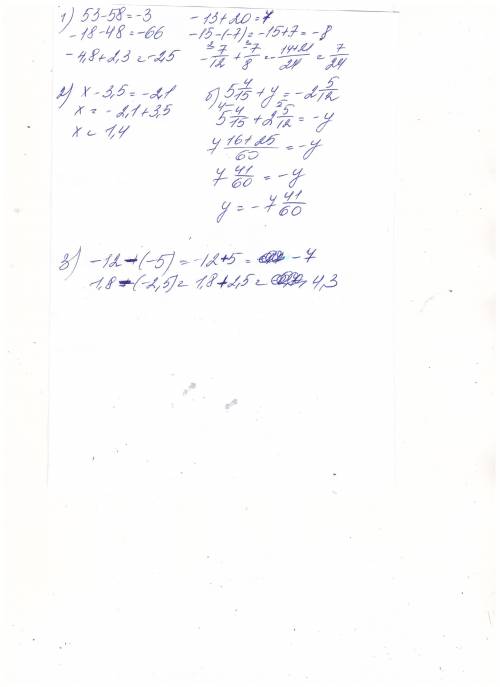 1) 53-58=-3
-18-48=-66
-4,8+2,3=-25
-13+20=7
-15-(-7)=-15+7=-8
-7/12+7/8=-14+21/24=7/24
2) x-3,5=-2,1
x=-2,1+3,5
x=1,4
б) 5 4/15+y=-2 5/12
5 4/15+2 5/12=-y
7 16+25/60=-y
7 41/60=-y
y=-7 41/60
3) -12-(-5)=-12+5=-7
1,8-(-2,5)=1,8+2,5=4,3